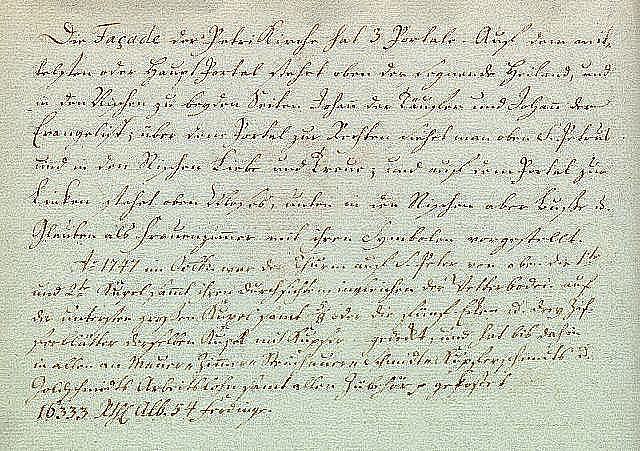 Die Façade der Petri Kirche hat 3 Portale. Auf dem mit-
telsten oder Haupt Portal stehet oben der segnende Heiland, und
in den Nischen zu beyden Seiten Johan der Täuffer und Johan der
Evangelist; über dem Portal zur Rechten siehet man oben S. Petrus
und in den Nischen Liebe und Treue; und auf dem Portal zur
Linken stehet oben unten in den Nischen aber Buße &
Glauben als Frauenzimer mit ihren Symbolen vorgestellt.
Ao 1741 im war der Thurm auf S. Peter von oben die 1te
und 2te Kupel samt ihren Durchsicht der Polterboden auf
der untersten großen Kupel samt oder die fünf
derselben Kupel mit Kupfer gedekt, und hat bis dahin
in allen an Maurer Zimer Steinhauer Kupferschmidts &
Goldschmidts Arbeitslohn samt allen Zubehör gekostet
16333 Alb. 54 Ferdinge.